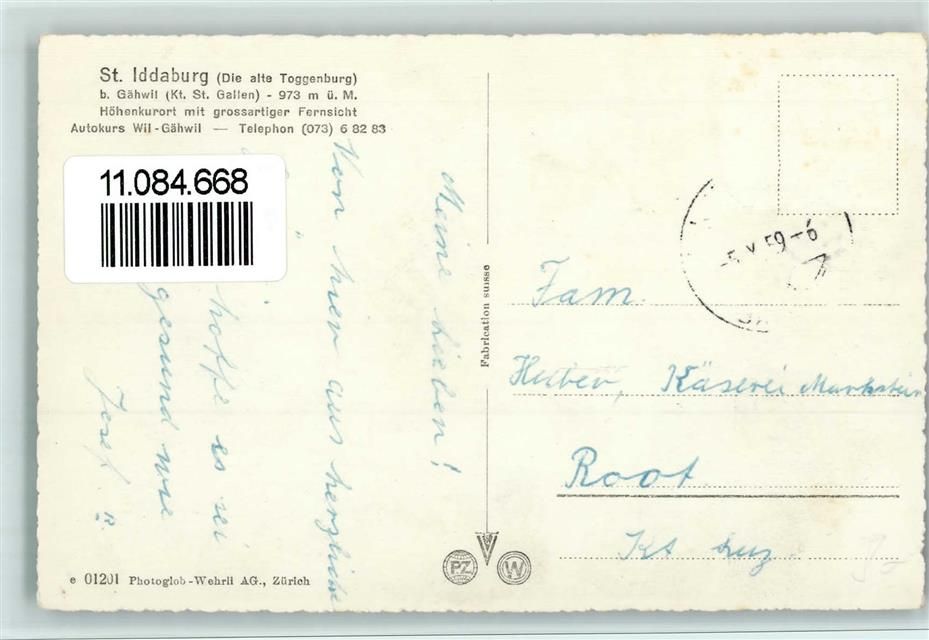 St. Iddaburg (Die alte Toggenburg)
b. Gähwil (Kt. St. Gallen) - 973 m ü. M.
Höhenkurort mit grossartiger Fernsicht
Autokurs Wil-Gähwil — Telephon (073) 6 82 83
11.084.668
Meine Lieben!
Von hier aus herzliche
hoffe es sei
gesund wie
Josef
Fabrication suisse
-5.X.59-6
Fam.
Huber, Käserei Markstein
Root
Kt Luz.
PZ W
e 01201 Photoglob-Wehrli AG., Zürich